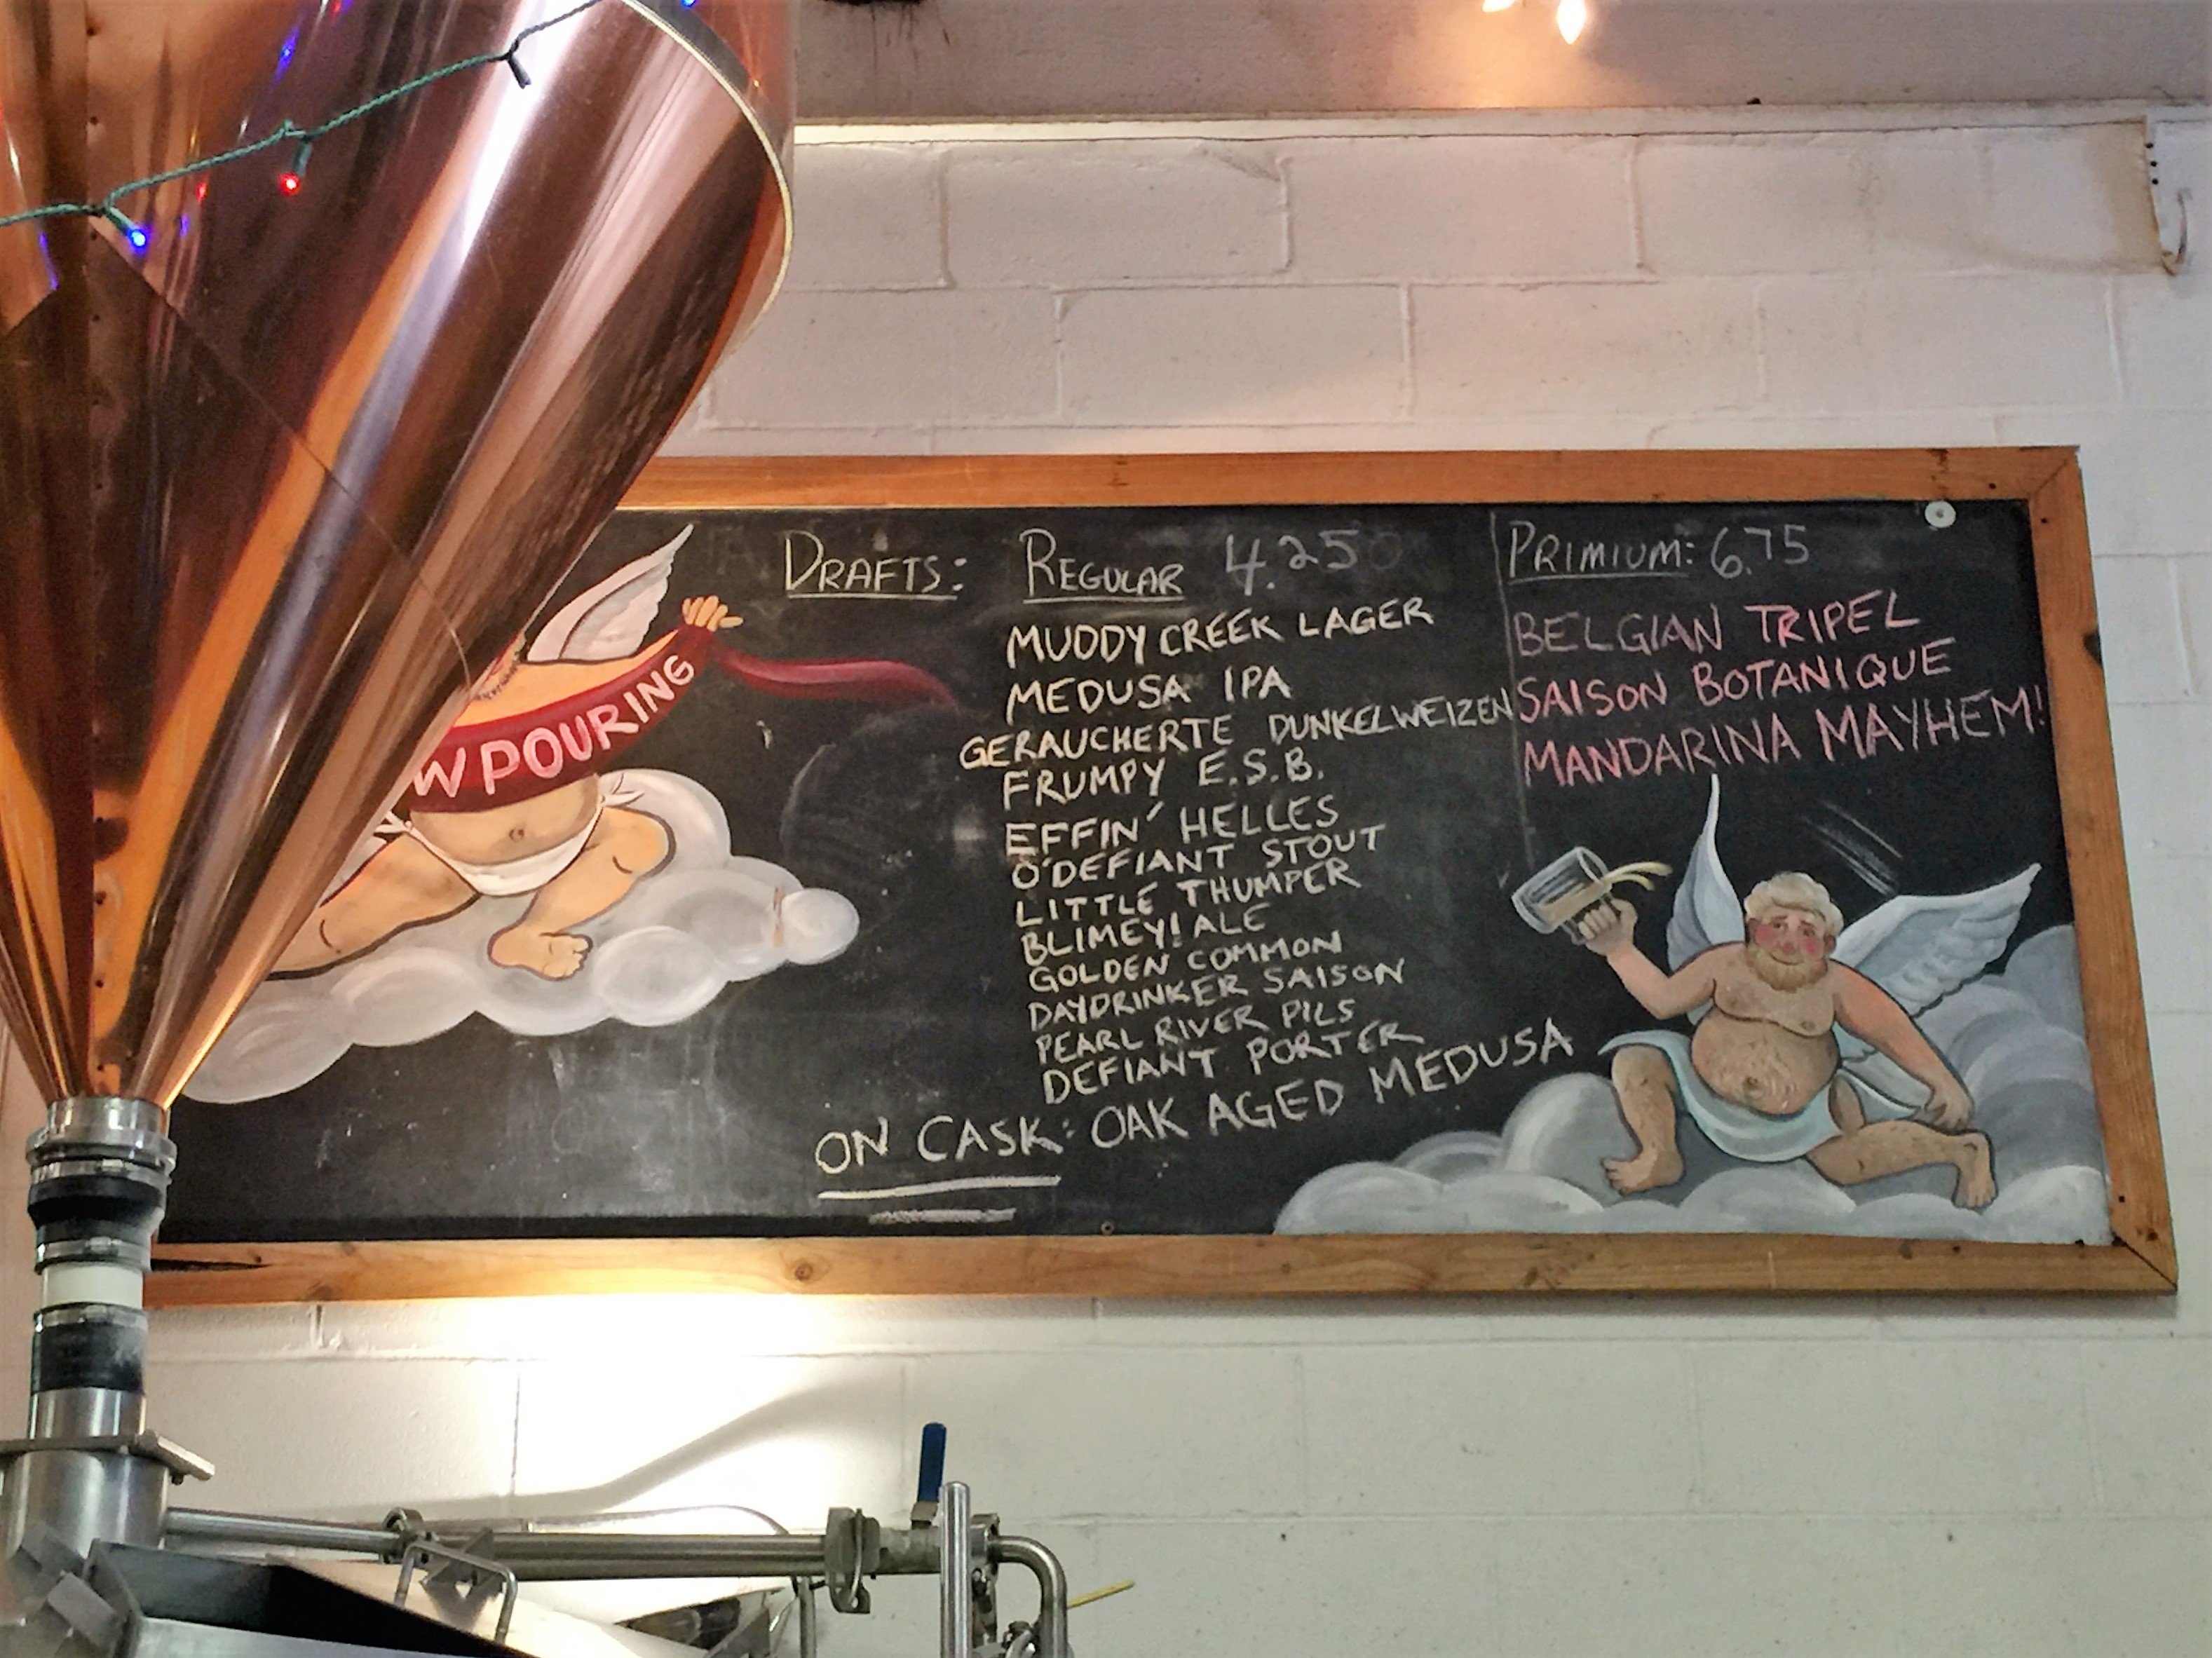 W POURING
DRAFTS: REGULAR 4.25
MUDDY CREEK LAGER
MEDUSA IPA
GERAUCHERTE DUNKELWEIZEN
FRUMPY E.S.B.
EFFIN' HELLES
O'DEFIANT STOUT
LITTLE THUMPER
BLIMEY! ALE
GOLDEN COMMON
DAYDRINKER SAISON
PEARL RIVER PILS
DEFIANT PORTER
ON CASK: OAK AGED MEDUSA
PRIMIUM: 6.75
BELGIAN TRIPEL
SAISON BOTANIQUE
MANDARINA MAYHEM!